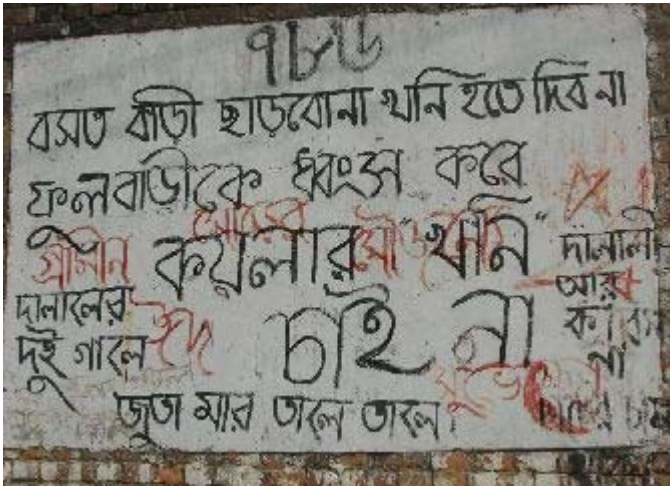 ৭৮৬
বসত বাড়ী ছাড়বোনা খনি হতে দিব না
ফুলবাড়ীকে ধ্বংস করে
কয়লার "খনি"
চাই না
দালালের
দুই গালে
জুতা মার তালে তালে।
দালালী
আর
না
গ্রামীন
ঈদ